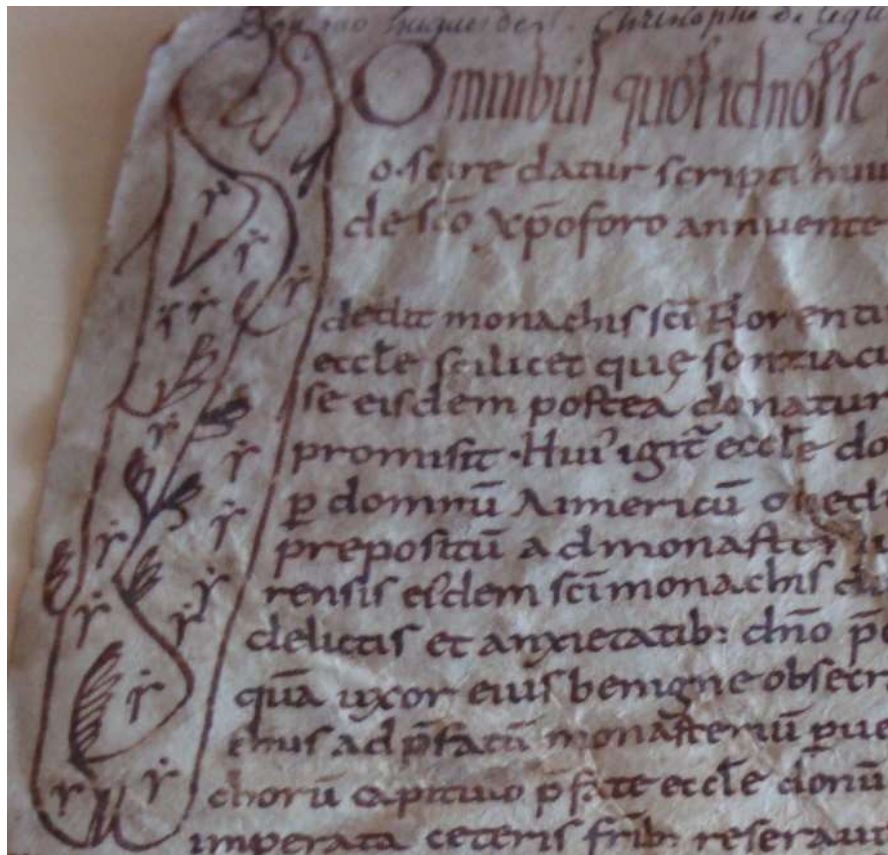 Christophe de
Omnibus quos id nosse
o. scire datur scripti huiu
de sc̄o xp̄oforo annuente
dedit monachis sc̄i Florenti
eccl̄e scilicet quę
se eisdem postea donatur
promisit. Hui' igit̄ eccl̄e do
p̱ domnū Aimericū
prepositū ad monasteriu
rensis eisdem sc̄i monachis
delictis et anxietatib: dn̄o p̄
quā uxor eius benigne obsecr
ad p̄fatū monasteriū ꝑue
chorū capitulo p̄fate eccl̄e donū
imperata ceteris fr̄ib: reseraut